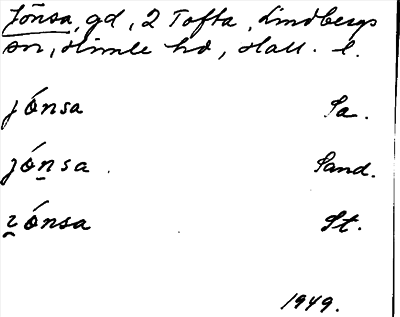 Jönsa, gd, 2 Tofta, Lindbergs
sn, Himle hd, Hall. l.
jónsa Sa.
jóṉsa. Sand.
ɿ̱ónsa St.
1949.